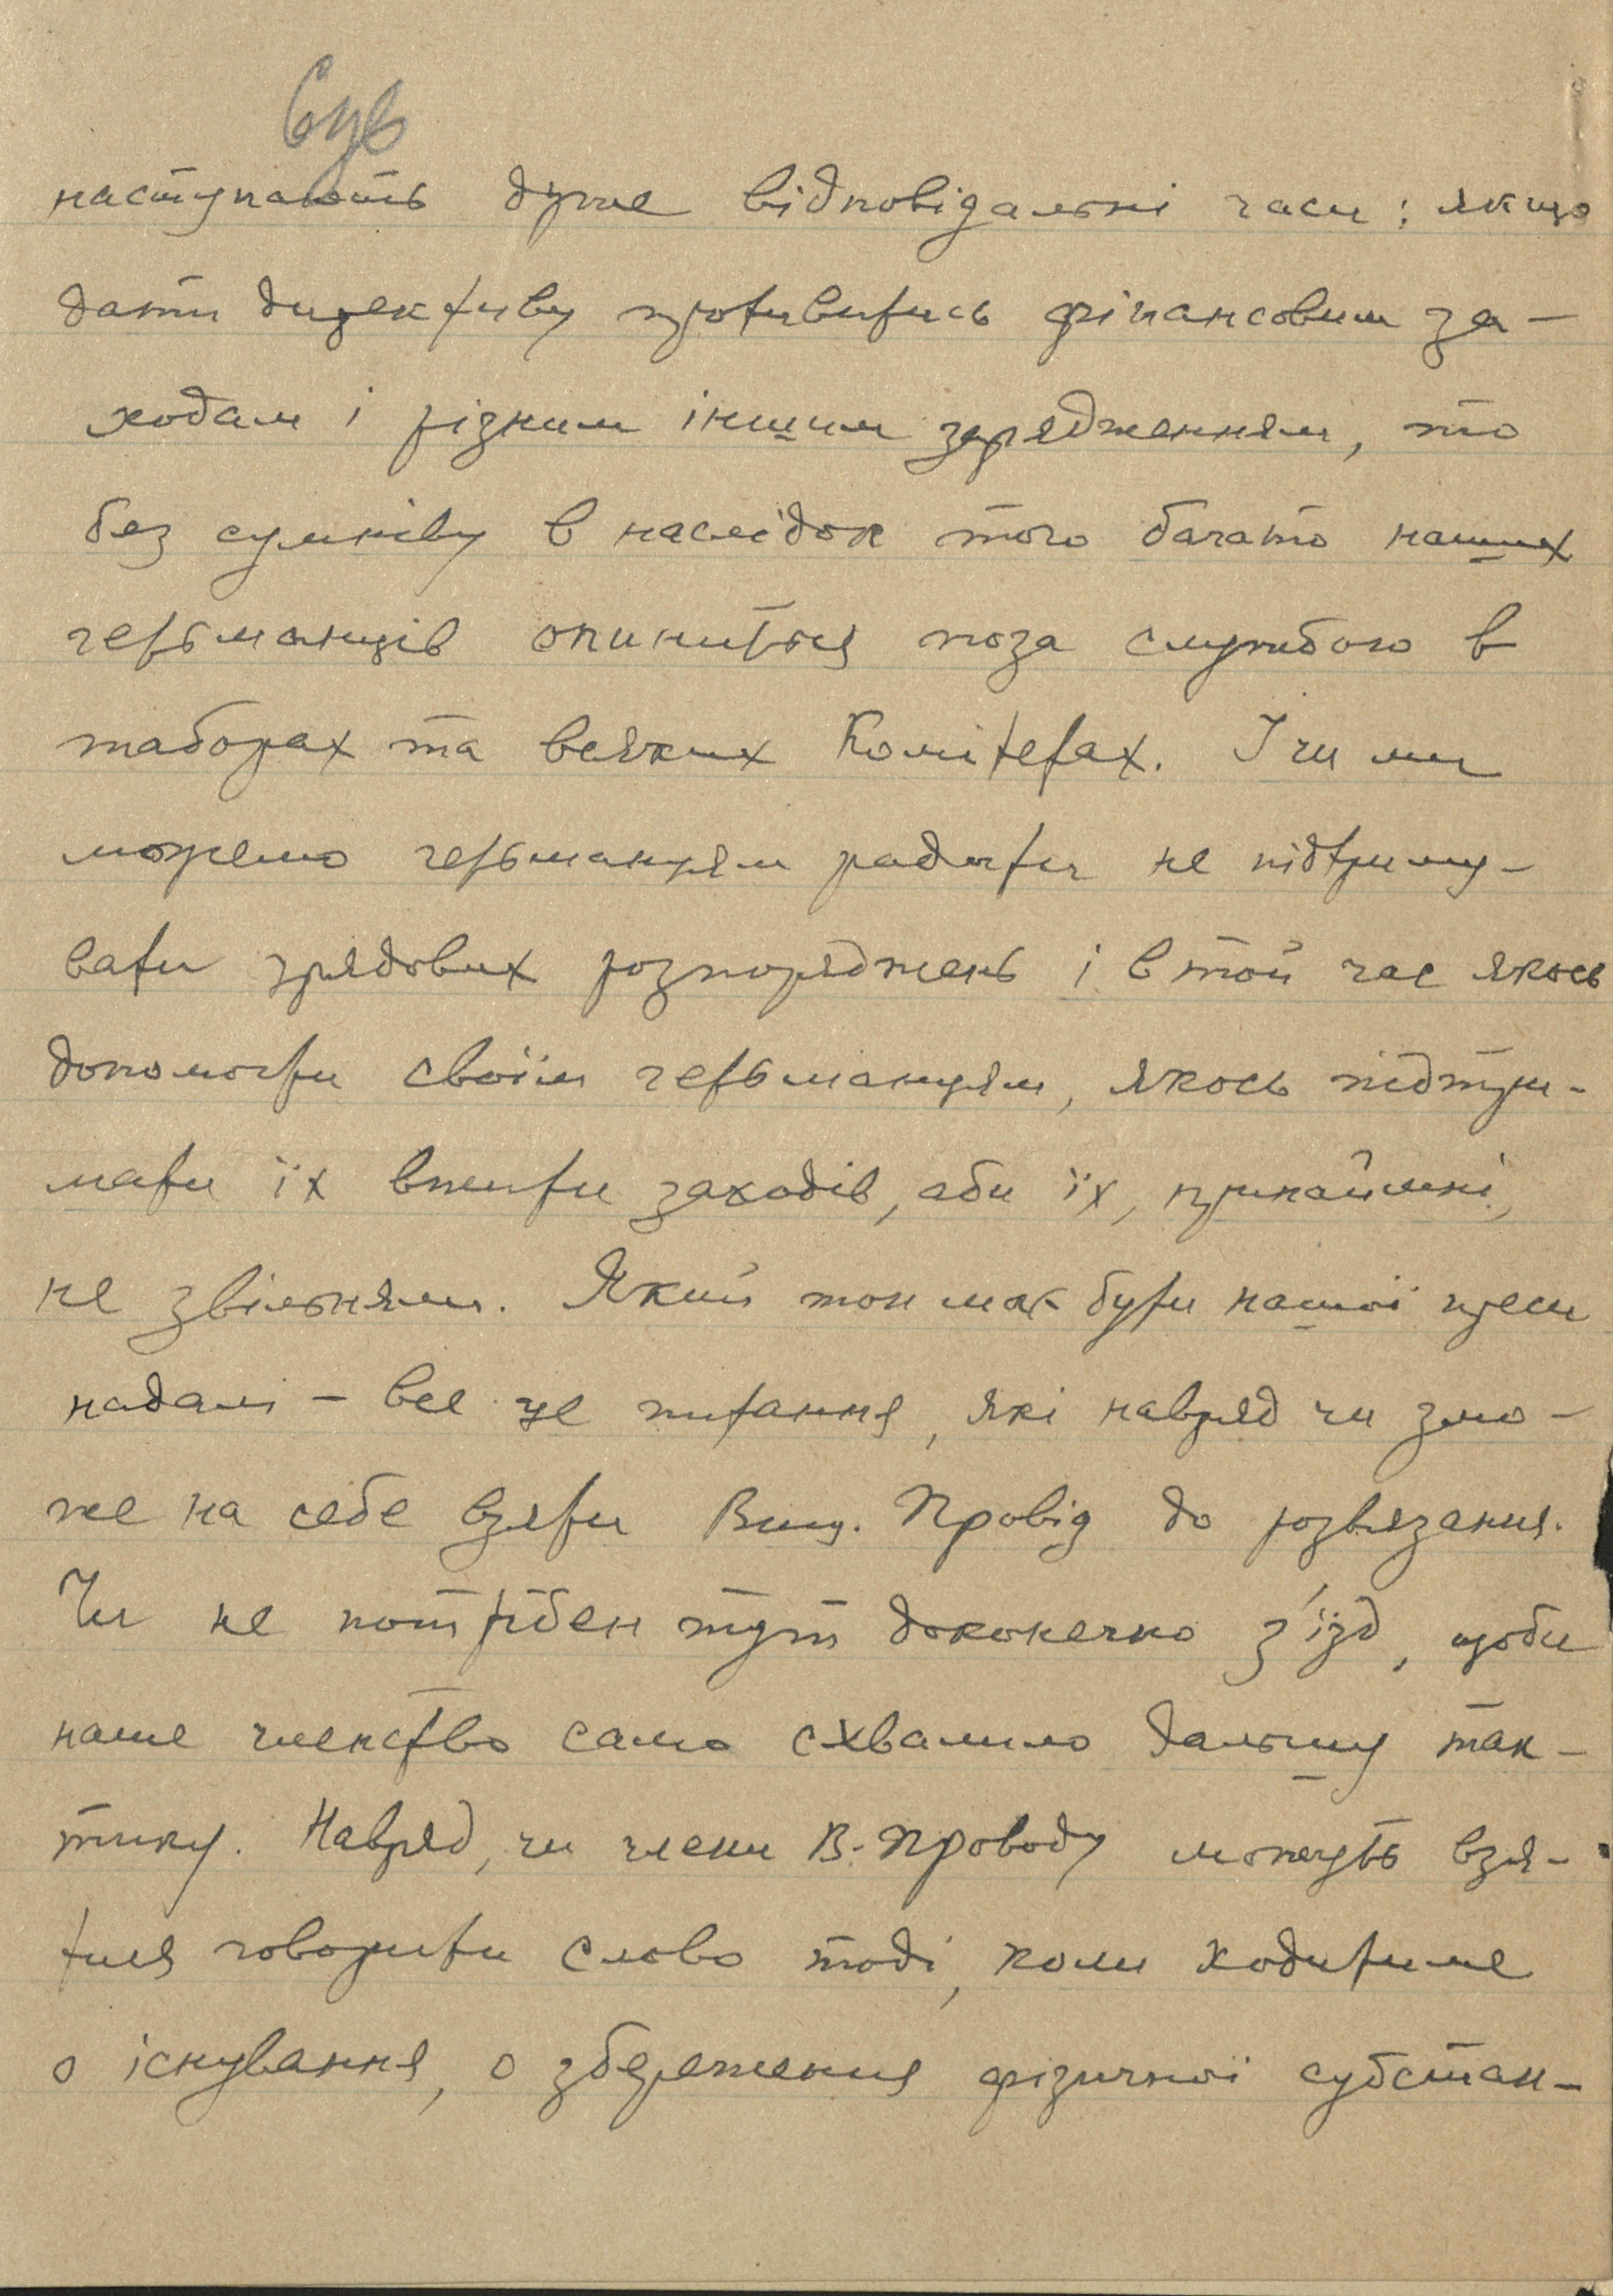 наступають дуже відповідальні часи: якщо
дати директиву противитись фінансовим за-
ходам і різним іншим зарядженням, то
без сумніву в наслідок того багато наших
гетьманців опиниться поза службою в
таборах та всяких Комітетах. І чи ми
можемо гетьманцям радити не підтриму-
вати урядових розпоряджень і в той час якось
допомогти своїм гетьманцям, якось підтри-
мати їх вжити заходів, аби їх, принаймні,
не звільняли. Який тон має бути нашої преси
надалі – все це питання, які навряд чи змо-
же на себе взяти Вищ. Провід до розвязання.
Чи не потрібен тут доконечно з'їзд, щоби
наше членство само схвалило дальшу так-
тику. Навряд, чи члени В. Проводу можуть взя-
тися говорити слово тоді, коли ходитиме
о існування, о збереження фізичної субстан-